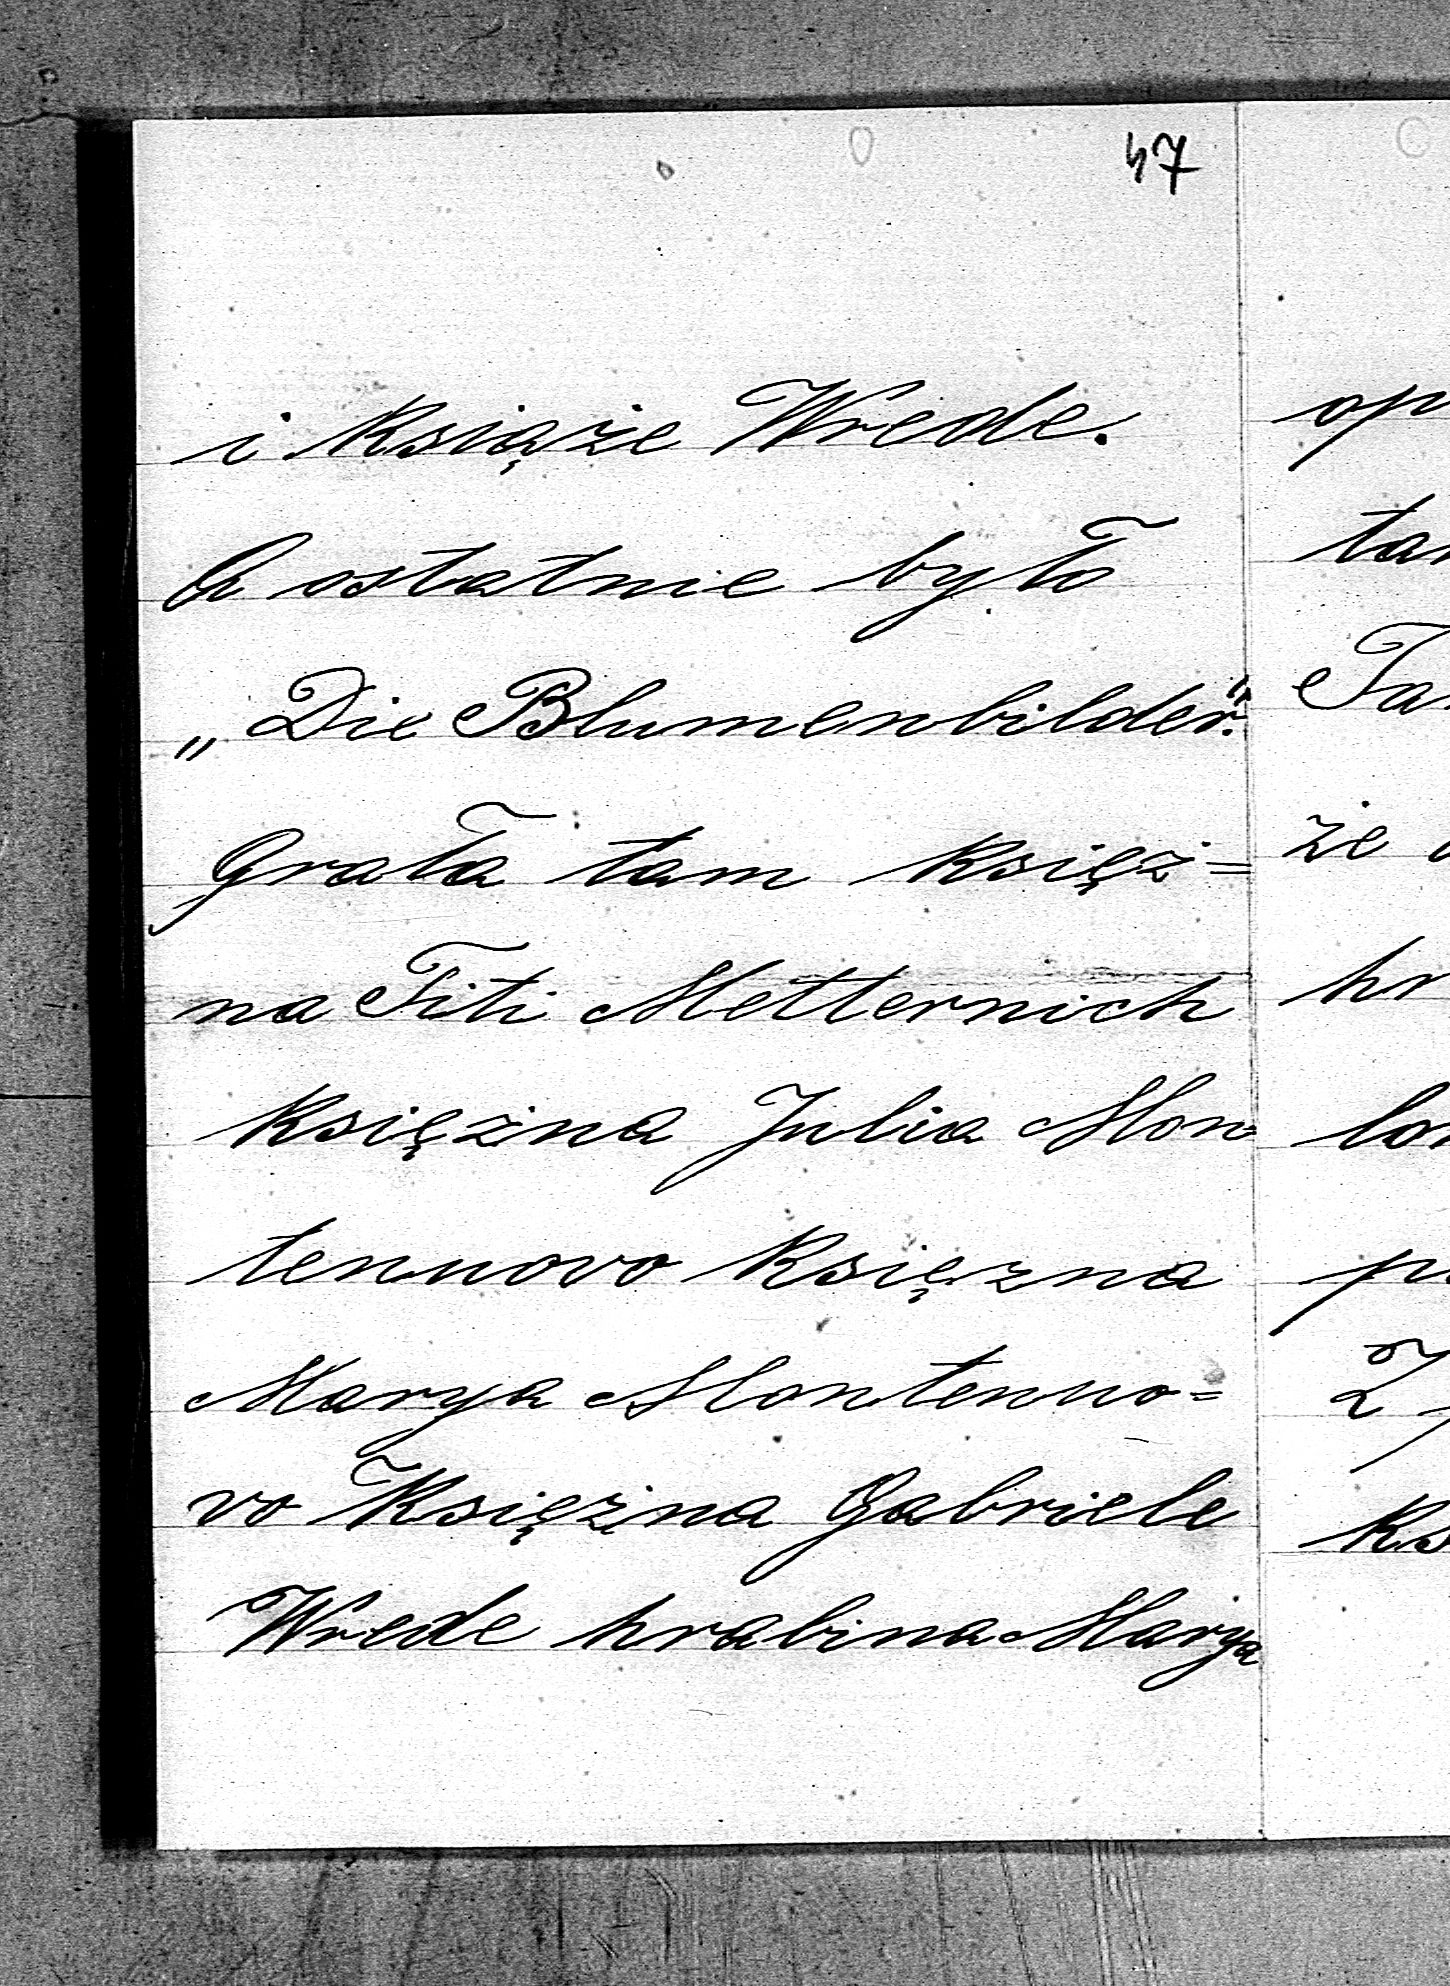 47
i Książe Wrede.
A ostatnie było
„Die Blumenbilder".
Grała tam Księż=
na Titi Metternich
Księżna Julia Mon=
tenuovo Księzna
Marya Montenuo=
vo Księżna Gabriele
Wrede hrabina Marya
op
tan
Tan
że
hr
lon
ks